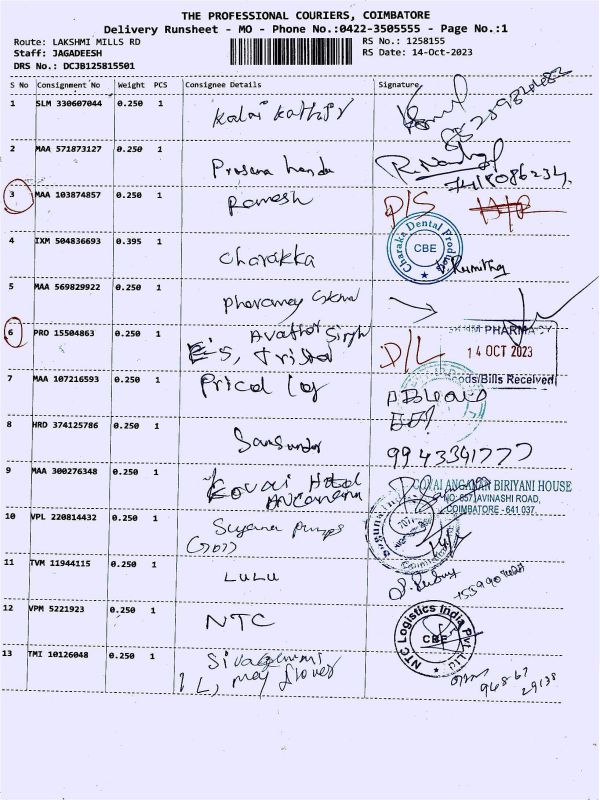 THE PROFESSIONAL COURIERS, COIMBATORE
Delivery Runsheet - MO - Phone No.:0422-3505555 - Page No.:1
Route: LAKSHMI MILLS RD
RS No.: 1258155
Staff: JAGADEESH
RS Date: 14-Oct-2023
DRS No.: DCJB125815501
S No Consignment No Weight PCS Consignee Details Signature
1 SLM 330607044 0.250 1 Kalai Kathir
2 MAA 571873127 0.250 1 Prasana
3 MAA 103874857 0.250 1 Ramesh D/S
Charaka Dental Produ
CBE
4 IXM 504836693 0.395 1 Charakka
5 MAA 569829922 0.250 1
6 PRO 15504863 0.250 1 Singh D/L
PHARMACY
14 OCT 2023
Goods/Bills Received
7 MAA 107216593 0.250 1 Pricol
8 HRD 374125786 0.250 1 9943341777
9 MAA 300276348 0.250 1 Kovai Hotel
KOVAI ANGANAN BIRIYANI HOUSE
NO: 657, AVINASHI ROAD,
COIMBATORE - 641 037.
10 VPL 220814432 0.250 1 Suguna pumps
11 TVM 11944115 0.250 1 LULU
12 VPM 5221923 0.250 1 NTC
NTC Logistics India Pvt. Ltd
CBE
13 TMI 10126048 0.250 1
96867
29138